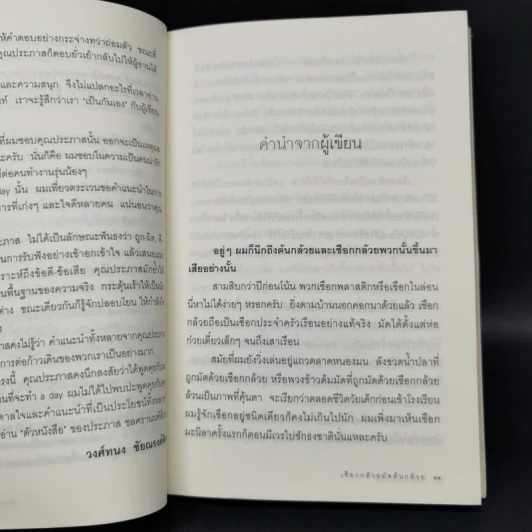 ห้คำตอบอย่างกระจ่างทว่าถ่อมตัว ขณะที่
คุณประภาสก็ตอบยั่วเย้ากลับไปให้ผู้อ่านได้
และความสนุก จึงไม่แปลกอะไรที่เวลาอ่าน
เราจะรู้สึกว่าเรา 'เป็นกันเอง' กับผู้เขียน
ที่ผมชอบคุณประภาสนั้น ออกจะเป็นเหตุผล
ะครับ นั่นก็คือ ผมชอบในความเป็นคนน่ารัก
ต่อคนทำงานรุ่นน้องๆ
day นั้น ผมเที่ยวตระเวนขอคำแนะนำในการ
การที่เก่งๆ และใจดีหลายคน แน่นอนว่าคุณ
ภาส ไม่ได้เป็นลักษณะฟันธงว่า ถูก-ผิด, ดี
นการรับฟังอย่างเข้าอกเข้าใจ แล้วเสนอแนะ
ราะห์ถึงข้อดี-ข้อเสีย คุณประภาสมักย้ำไป
พื้นฐานของความจริง กระตุ้นเร้าให้เป็น
ต่าง ขณะเดียวกันก็รู้จักปลอบโยน ให้กำลังใจ
สคงไม่รู้ว่า คำแนะนำทั้งหลายจากคุณประภาส
การต่อก้าวเดินของพวกเราเป็นอย่างมาก
รงนี้ คุณประภาสคงนึกสงสัยว่าได้พูดคุยกับผม
นที่จะทำ a day ผมไม่ได้ไปพบปะพูดคุยกับ
ดาลใจและคำแนะนำที่เป็นประโยชน์ทั้งหลาย
อ่าน 'ตัวหนังสือ' ของประภาส ชลศรานนท์
วงศ์ทนง ชัยณรงค์สิงห์
คำนำจากผู้เขียน
อยู่ๆ ผมก็นึกถึงต้นกล้วยและเชือกกล้วยพวกนั้นขึ้นมา
เสียอย่างนั้น
สามสิบกว่าปีก่อนโน้น พวกเชือกพลาสติกหรือเชือกไนล่อน
นี่หาไม่ได้ง่ายๆ หรอกครับ ยิ่งตามบ้านนอกคอกนาด้วยแล้ว เชือก
กล้วยถือเป็นเชือกประจำครัวเรือนอย่างแท้จริง มัดได้ตั้งแต่ห่อ
ก๋วยเตี๋ยวเล็กๆ จนถึงเสาเรือน
สมัยที่ผมยังวิ่งเล่นอยู่แถวตลาดหนองมน ลังขวดน้ำปลาที่
ถูกมัดด้วยเชือกกล้วย หรือพวงข้าวต้มมัดที่ถูกมัดด้วยเชือกกล้วย
ล้วนเป็นภาพที่คุ้นตา จะเรียกว่าตลอดชีวิตวัยเด็กก่อนเข้าโรงเรียน
ผมรู้จักเชือกอยู่ชนิดเดียวก็คงไม่เกินไปนัก ผมเพิ่งมาเห็นเชือก
มะนิลาครั้งแรกก็ตอนมีเวรไปชักธงชาตินั่นแหละครับ
เชือกกล้วยมัดต้นกล้วย ๑๑